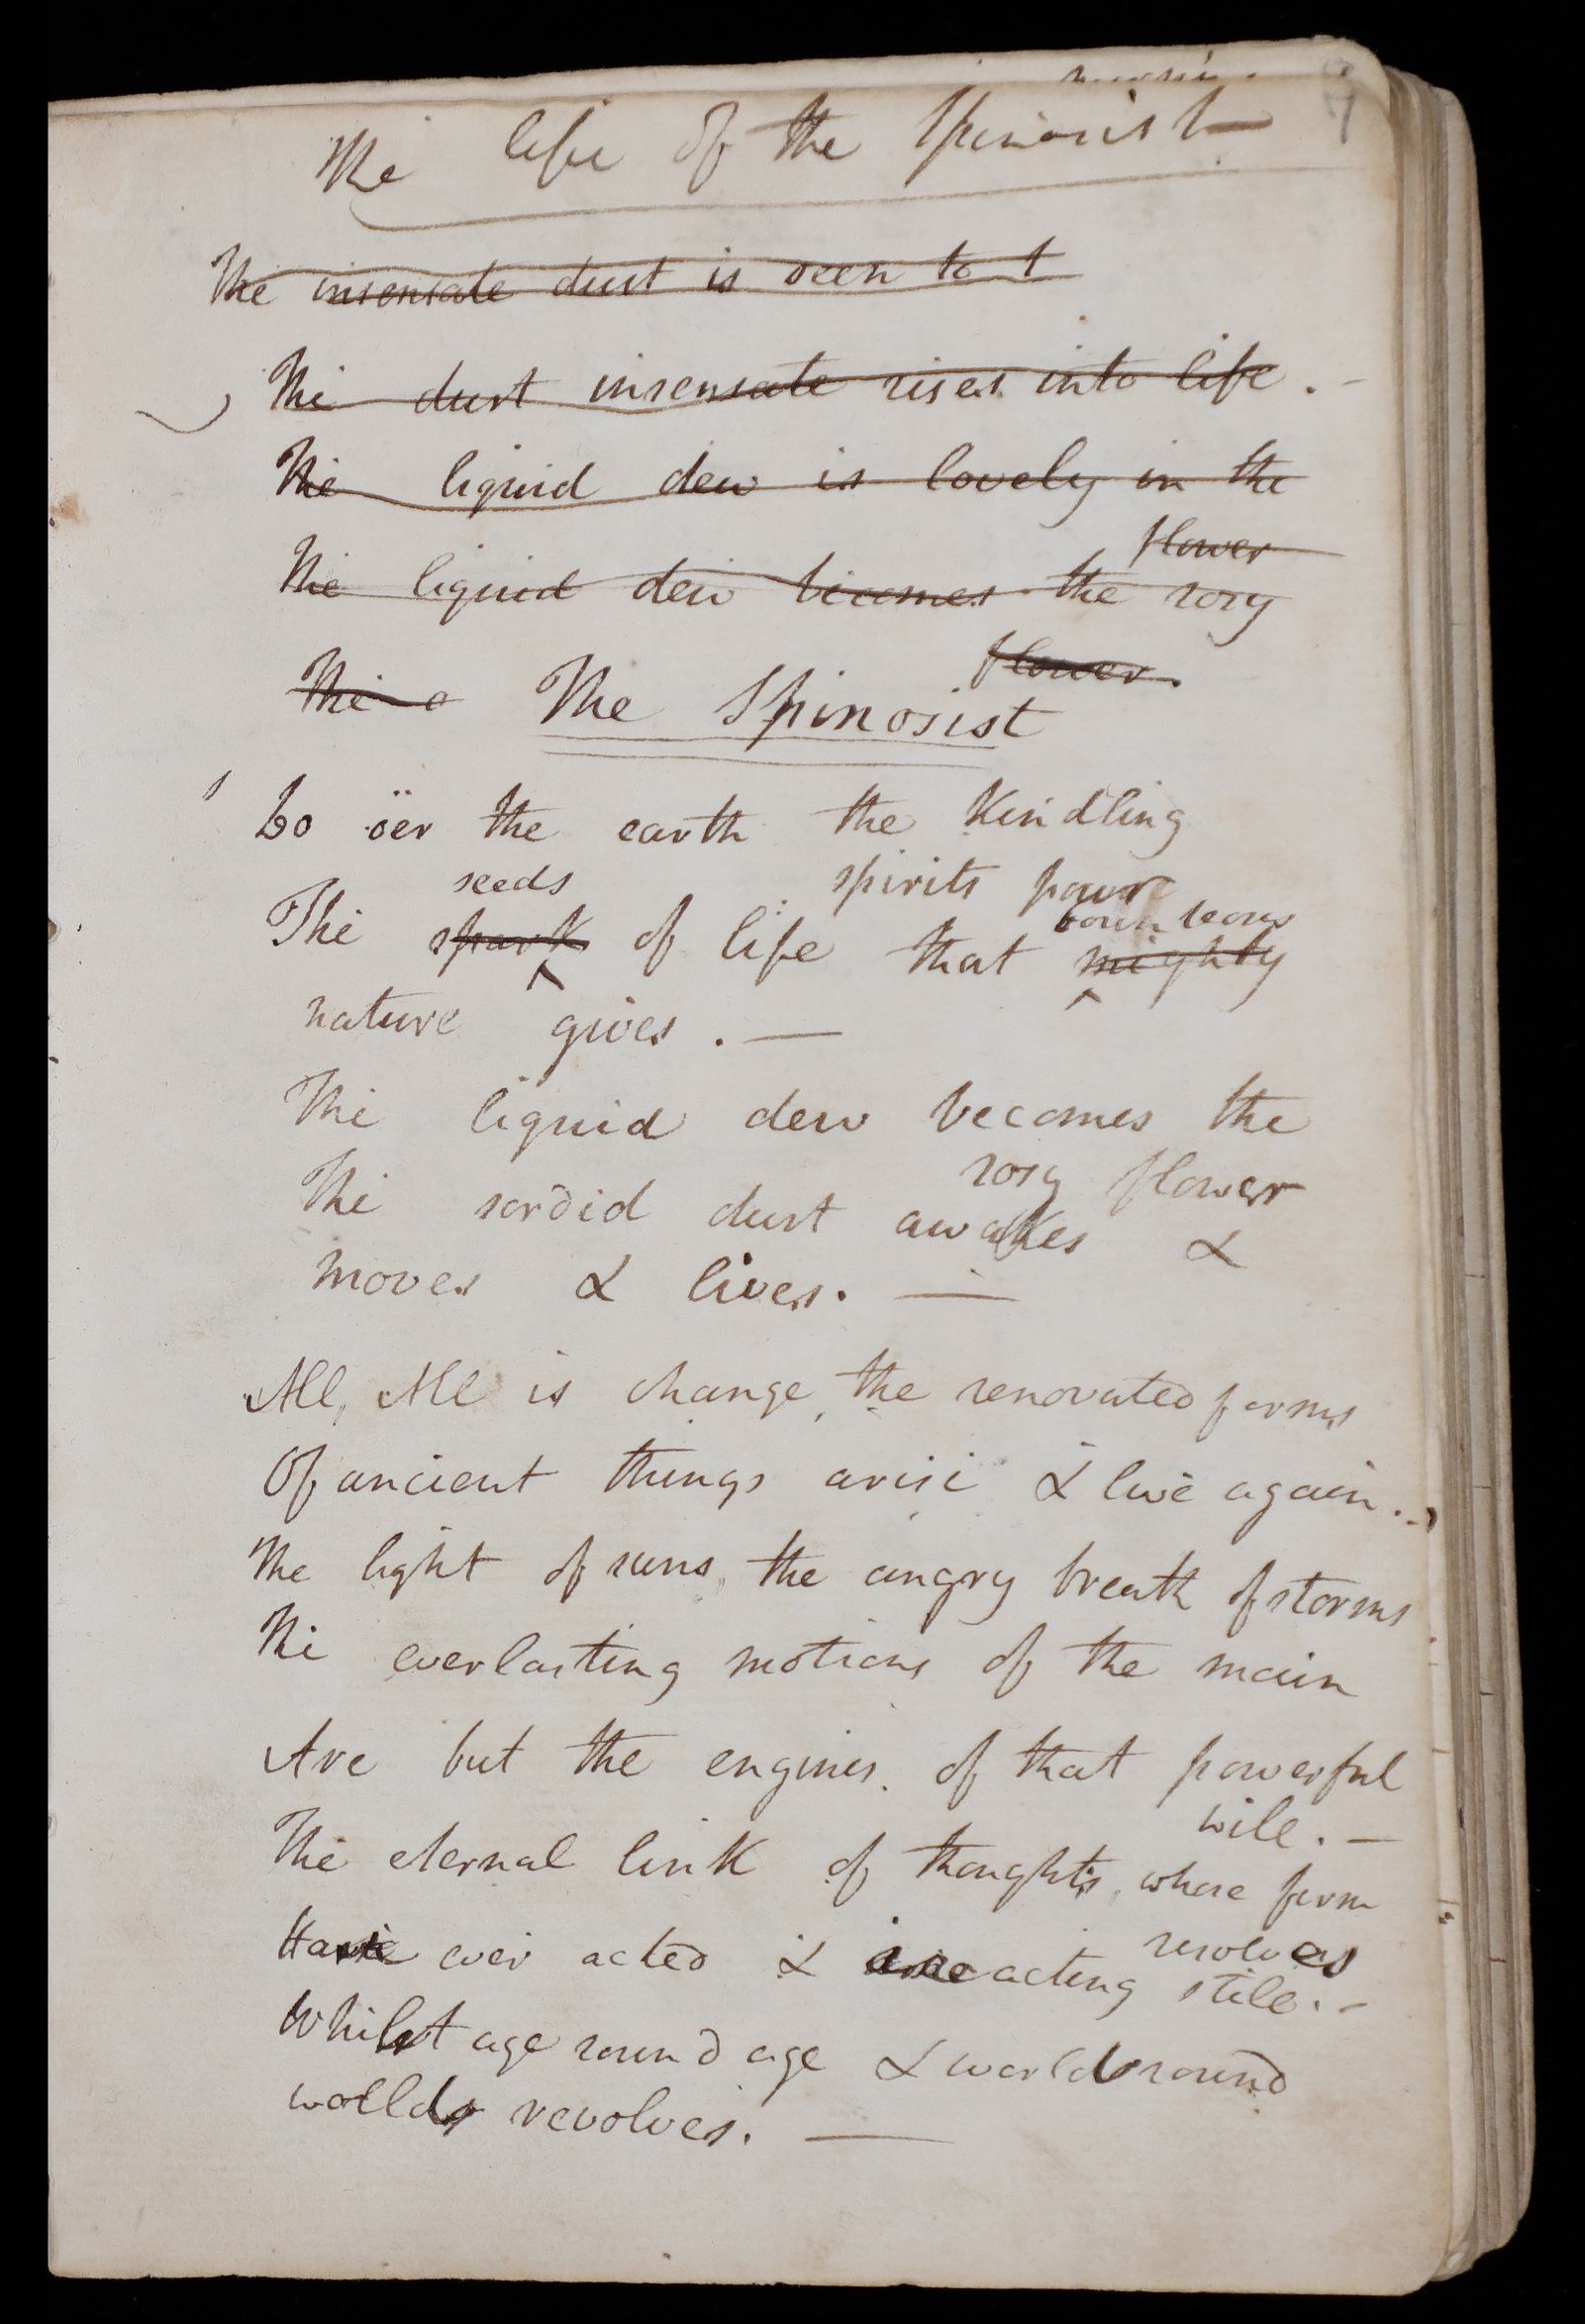 7
The life of the Spinosist
The insensate dust is seen to t
The dust insensate rises into life. -
The liquid dew is lovely in the
flower
The liquid dew becomes the rosy
flower.
The o The Spinosist
Lo öer the earth the Kindling
spirits pour
The spark seeds of life that mighty bounteous
nature gives. —
The liquid dew becomes the
rosy flower
The sordid dust awakes &
moves & lives. —
All, All is change, the renovated forms
Of ancient things arise & live again..
The light of suns, the angry breath of storms
The everlasting motions of the main
Are but the engines of that powerful
will. —
The eternal link of thoughts, where form
resolves
Have ever acted & are acting still. -
Whilst age round age & world round
wolld revolves. —